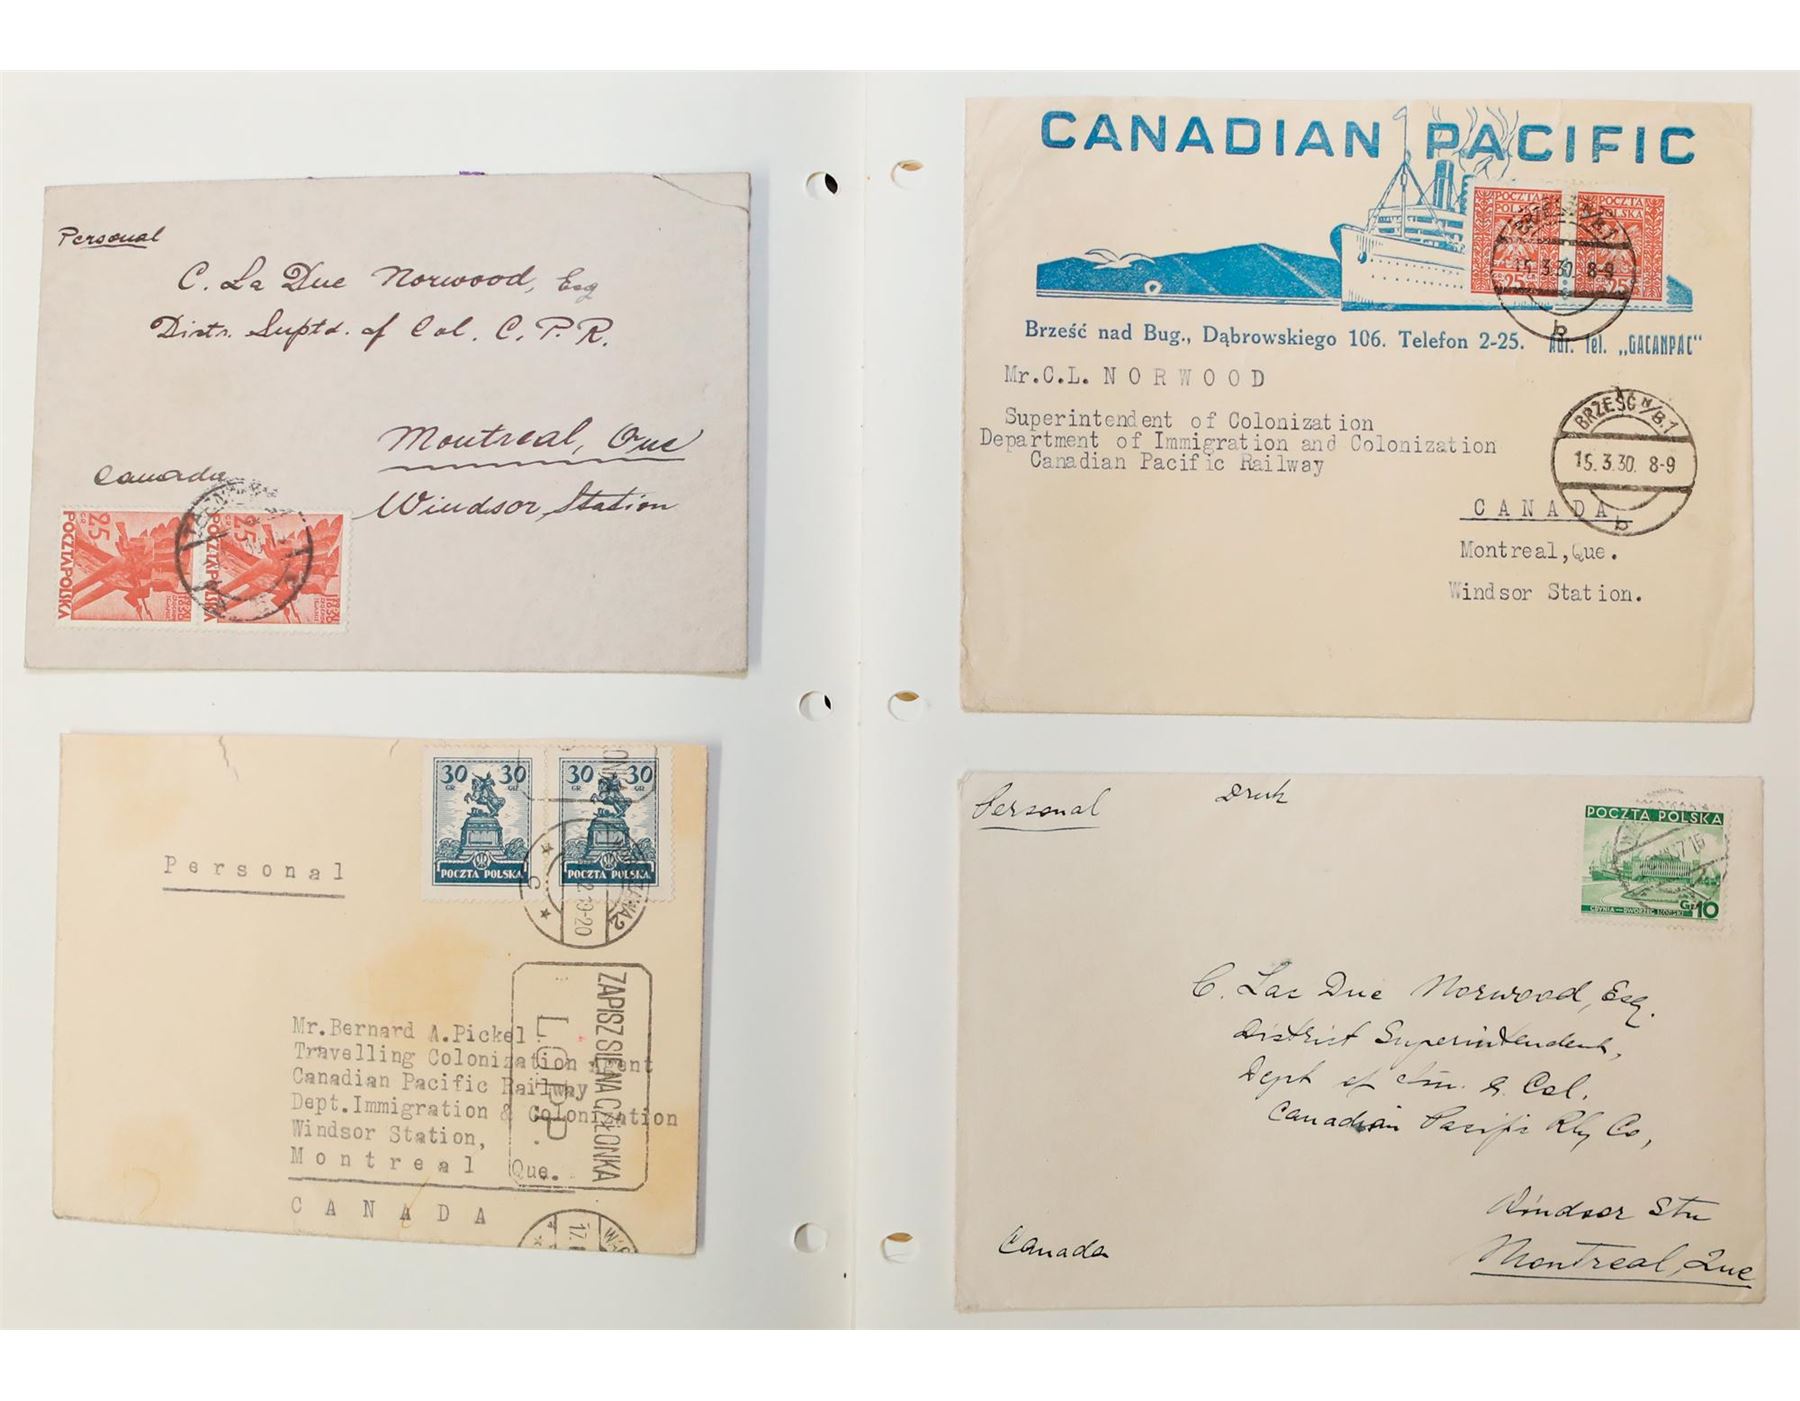 Personal
C. La Due Norwood, Esq
Distr. Suptd. of Col. C. P. R.
Montreal, Que
Canada
Windsor Station
25
GR
POCZTA POLSKA
25
POCZTA POLSKA
CANADIAN PACIFIC
POCZTA POLSKA
25
POCZTA POLSKA
25
BRZEŚĆ N/B.1
15.3.30. 8-9
b
Brześć nad Bug., Dąbrowskiego 106. Telefon 2-25. Adr. Tel. „GACANPAC"
Mr.C.L. NORWOOD
Superintendent of Colonization
Department of Immigration and Colonization
Canadian Pacific Railway
BRZEŚĆ N/B.1
15.3.30. 8-9
b
CANADA
Montreal,Que.
Windsor Station.
30 GR 30 GR
POCZTA POLSKA
30 GR 30 GR
POCZTA POLSKA
WARSZAWA 2
19-20
C
Personal
ZAPISZ SIĘ NA CZŁONKA
L.O.P.P.
Mr.Bernard A.Pickel
Travelling Colonization Agent
Canadian Pacific Railway
Dept.Immigration & Colonization
Windsor Station,
Montreal Que.
CANADA
17.
Personal
Druk
POCZTA POLSKA
GDYNIA — DWORZEC MORSKI
Gr 10
C. Lac Due Norwood, Esq.
District Superintendent,
Dept of Im. & Col.
Canadian Pacific Rly Co,
Windsor Stn
Montreal, Que
Canada